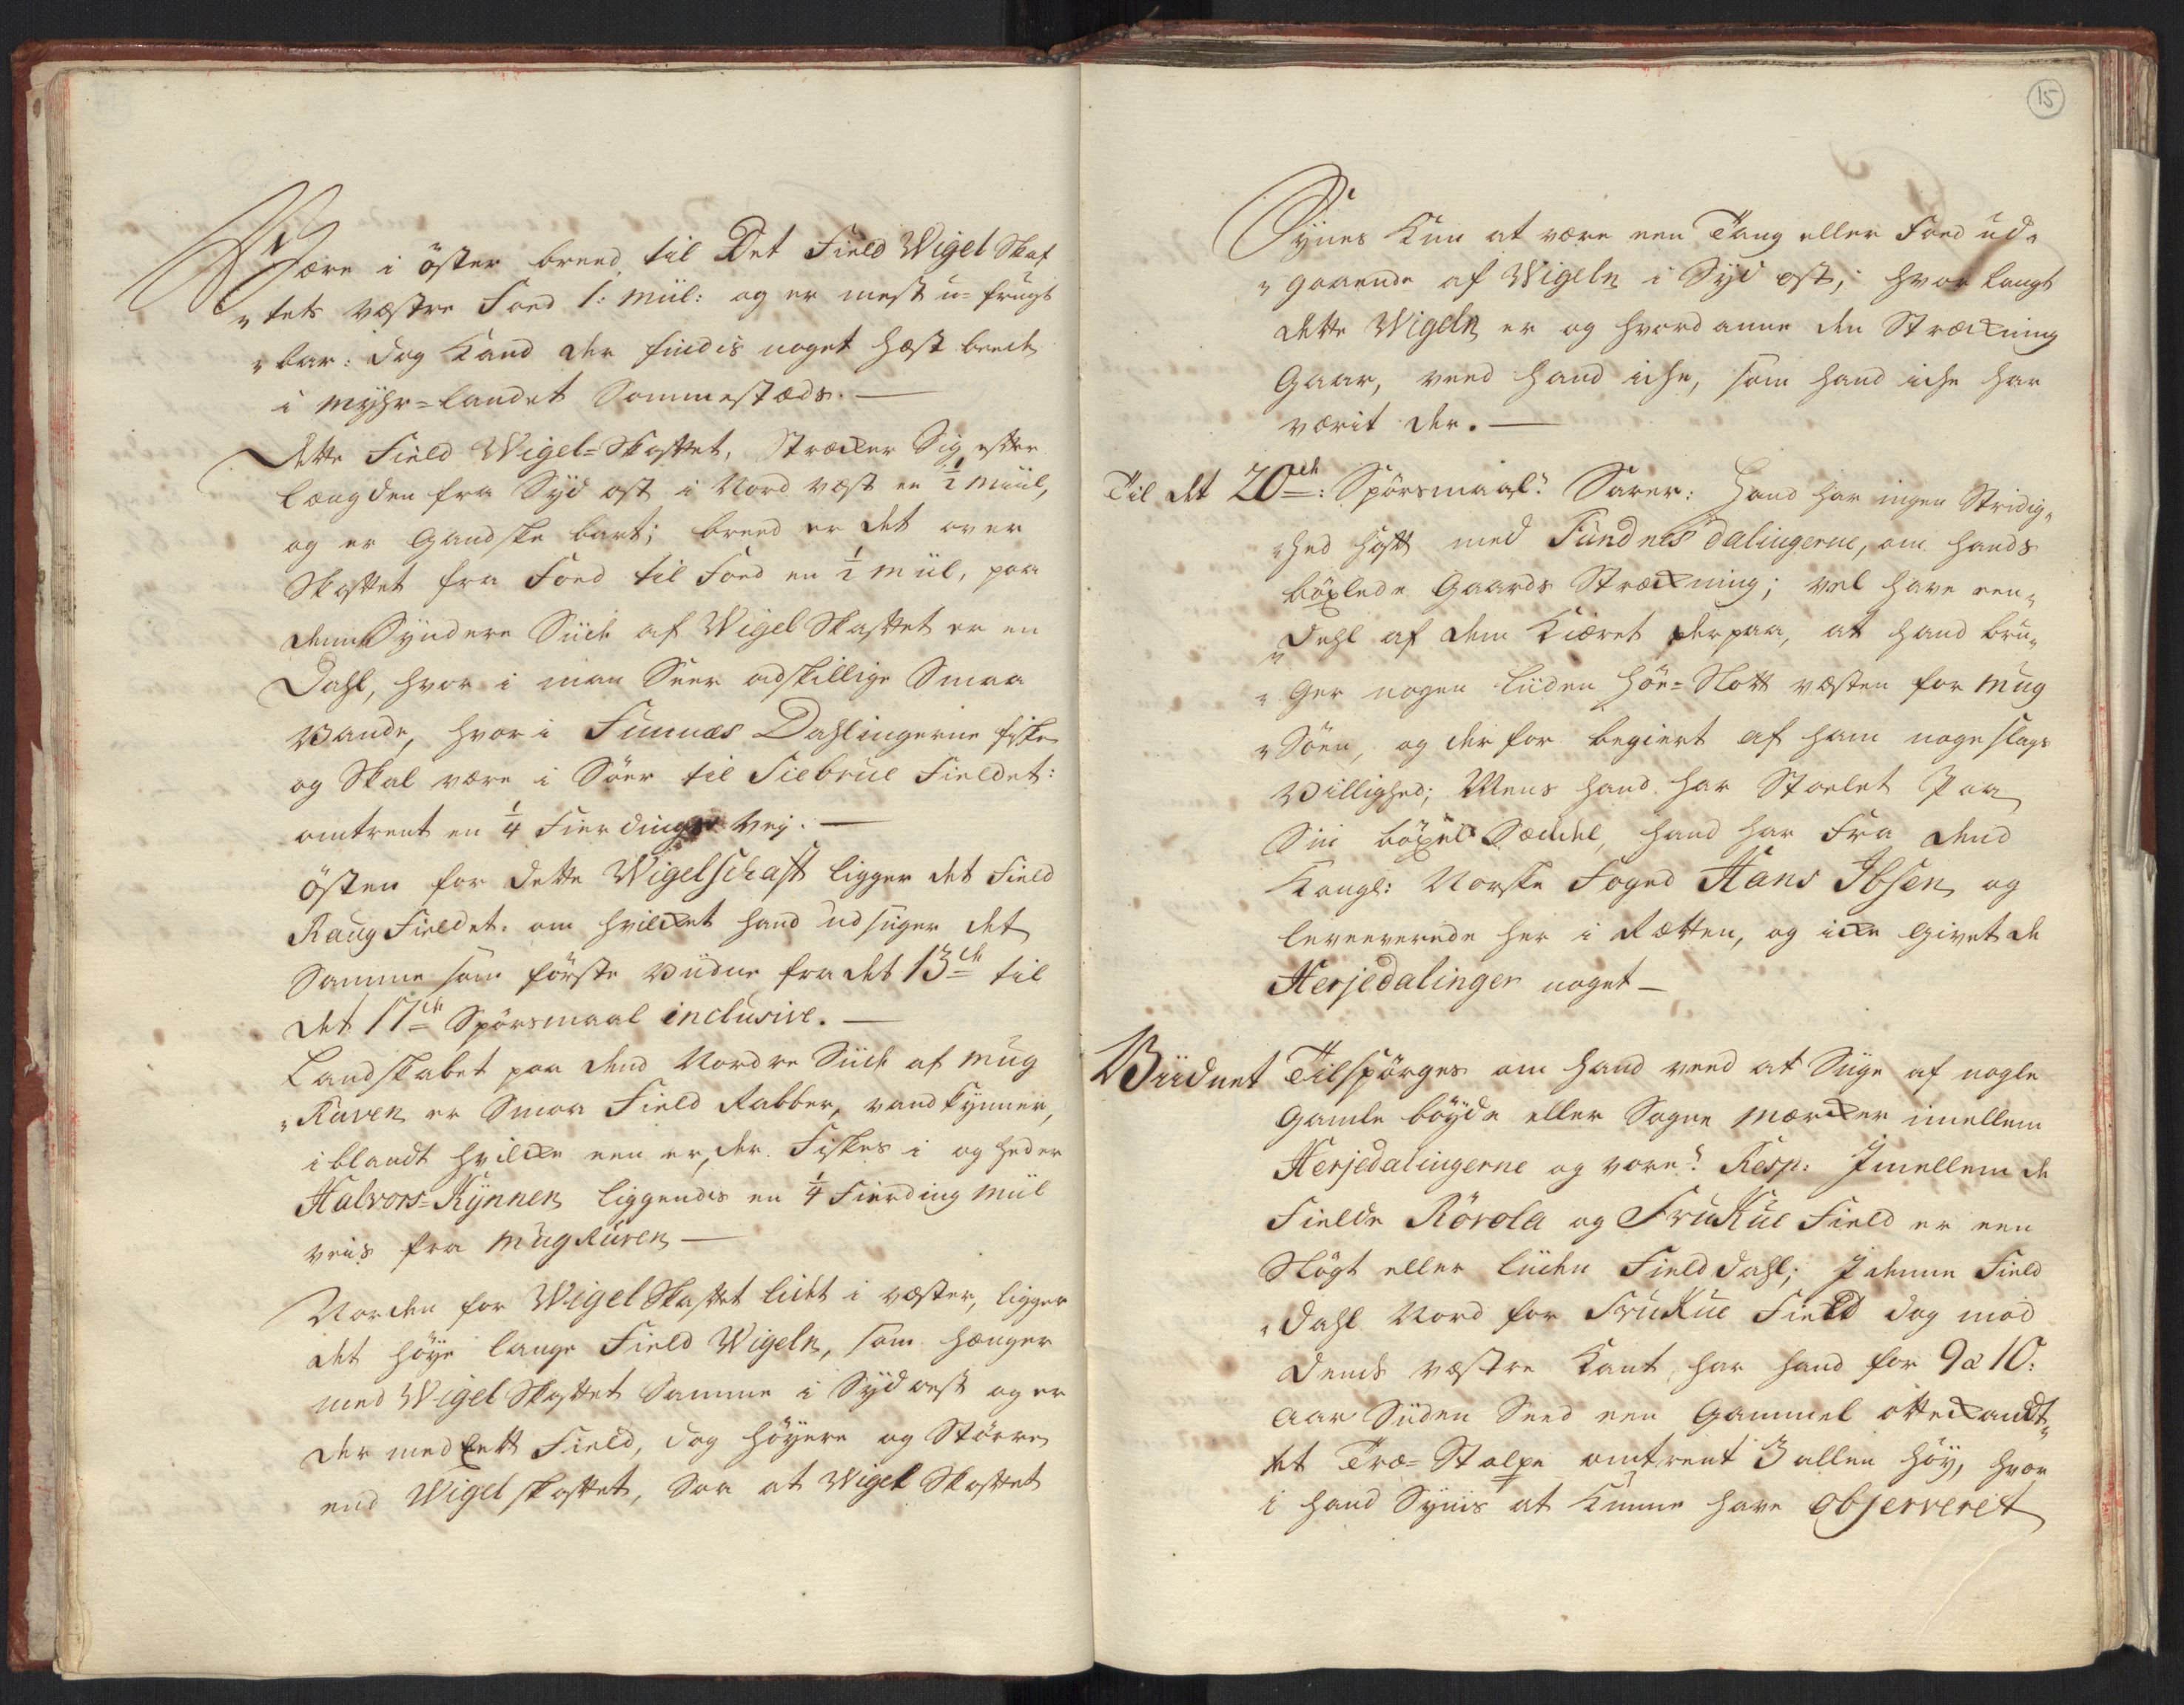 Være i öster breed til Det Field Wigel Skaf
„tets væstre Foed 1: Miil: og er mest u=frugt
„bar: dog kand der findis noget Hæst beede
i Myhr=landet Sommestæds. —
Dette Field Wigel=Skaftet, Strecker Sig efter
længden fra Syd ost i Nord væst en ½ Miil,
og er Gandske bart; breed er det over
Skaftet fra Foed til Foed en ½ Miil, paa
denne Syndere Siide af Wigel Skaftet er en
Dahl, hvor i man Seer adskillige Smaa
Vande, hvor i Funnæs Dahlingerne fiske
og Skal være i Söer til Siebrue Fieldet:
omtrent en ¼ Fierdings Vej. —
Östen for dette Wigelschaft ligger det Field
Raug Fieldet: om hvilcket hand udsiger det
Samme som förste Viidne fra det 13de til
det 17de Spörsmaal inclusive. —
Landskabet paa dend Nordre Siide af Mug
„Ruven er Smaa Field Rabber, vand kynner,
iblandt hvilcke een er, der Fiskes i og heder
Halvors=Kynnen liggendes en ¼ Fierding Miil
veis fra Mug Ruven —
Norden for Wigel Skaftet lidt i væster, ligger
det höye lange Field Wigeln, som hænger
med Wigel Skaftet Samme i Syd ost og er
der med Eett Field, dog höyere og Större
end Wigel skaftet, Saa at Wigel Skaftet
15
Synes kun at være een Tang eller Foed ud„
„gaaende af Wigeln i Syd ost; hvor langt
dette Wigeln er og hvordanne den Stræckning
Gaar, veed hand icke, som hand icke har
værit der. —
Til det 20de: Spörsmaal? Svarer: Hand har ingen Stridig„
„hed hatt med Fundnes dalingerne, om hands
böxlede Gaards Stræckning; vel have een„
„Dehl af dem Kiæret derpaa, at hand bru„
„Ger nogen liiden Höe=Slott væsten for Mug
„Söen, og derfor begiert af ham noge slags
Villighed; Mens hand har Stoelet Paa
Sin böxel Sæddel, hand har Fra dend
Kongl: Norske Foged Hans Ibsen, og
leverede her i Rætten, og icke Givet de
Herjedalinger noget —
Viidnet Tilspörges om hand veed at Siige af nogle
Gamle böyde eller Sogne Mærcker imellem
Herjedalingerne og vore? Resp: Imellem de
Fielde Rövola og FruKue Field er een
Slögt eller liiden Field Dahl; I denne Field
„Dahl Nord for FruKue Field dog mod
Dends væstre Kant, har hand for 9 a 10:
Aar Siiden Seed een Gammel otte kandt„
tet Træ=Stolpe omtrent 3 allen höy, hvor
i hand Synis at kunne have observeret